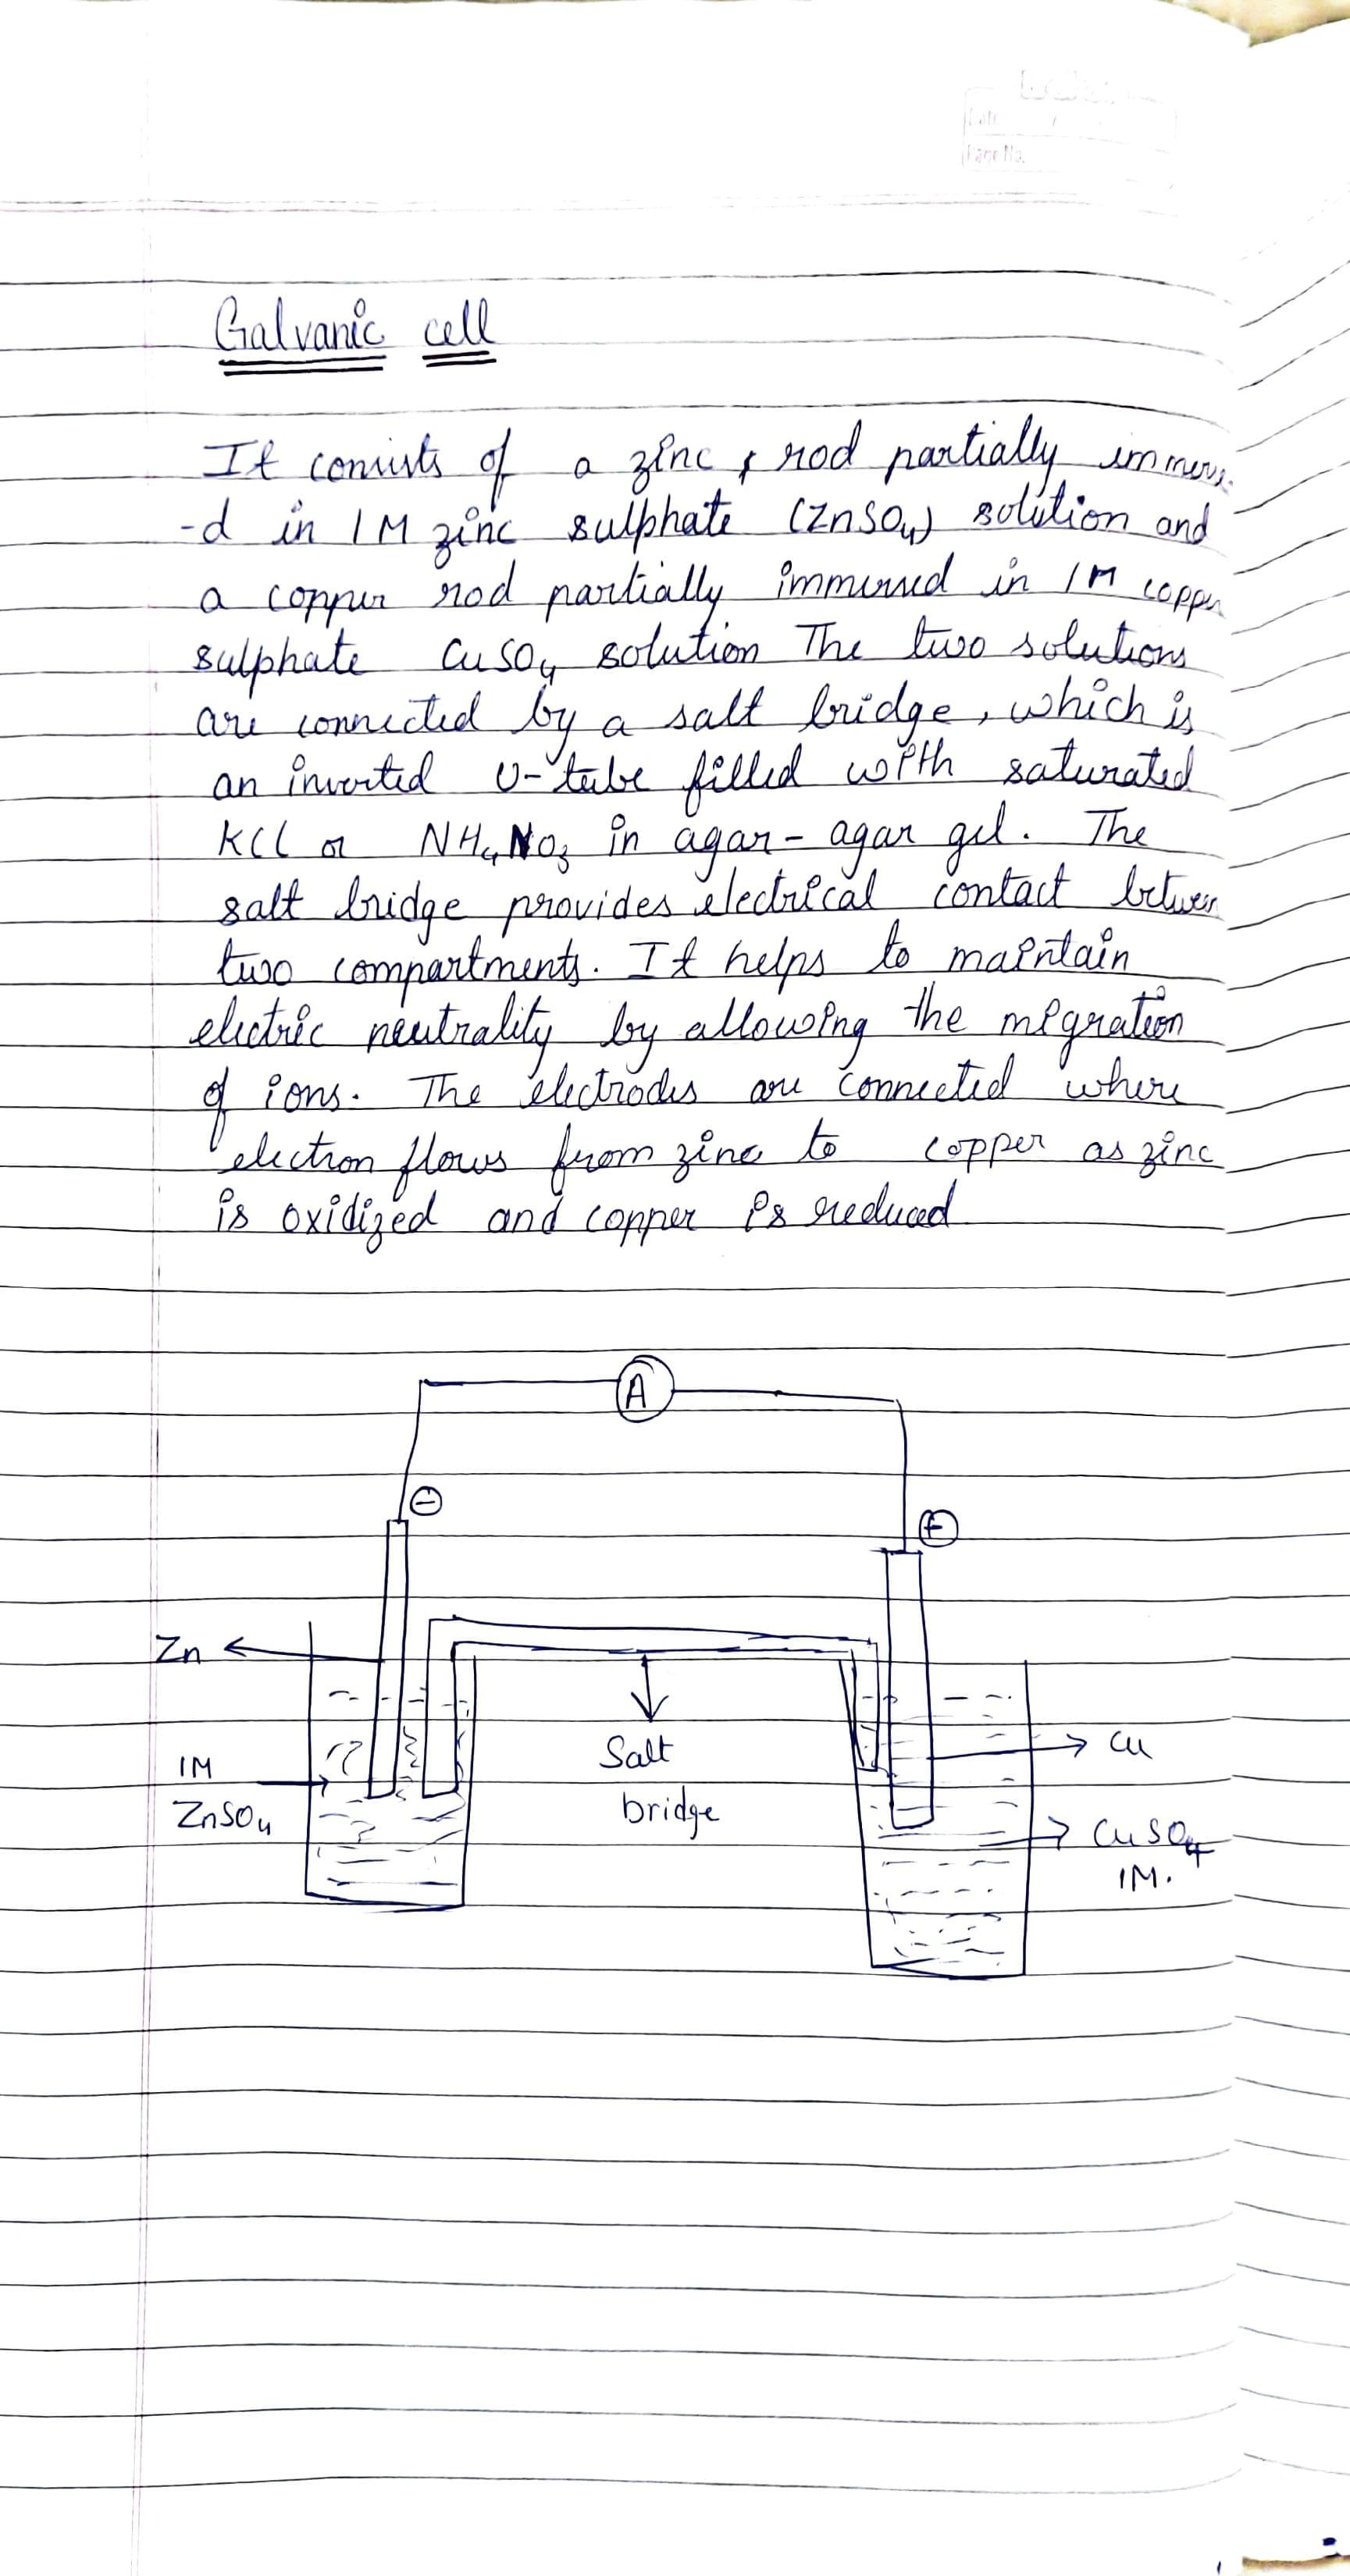 Date
Page No.
Galvanic cell
It consists of a zinc rod partially immers-
-d in 1M zinc sulphate (ZnSO4) solution and
a copper rod partially immersed in 1M copper
sulphate CuSO4 solution The two solutions
are connected by a salt bridge, which is
an inverted U-tube filled with saturated
KCl or NH4NO3 in agar-agar gel. The
salt bridge provides electrical contact between
two compartments. It helps to maintain
electric neutrality by allowing the migration
of ions. The electrodes are connected where
electron flows from zinc to copper as zinc
is oxidized and copper is reduced
A
-
+
Zn
Salt
bridge
Cu
1M
ZnSO4
CuSO4
1M.